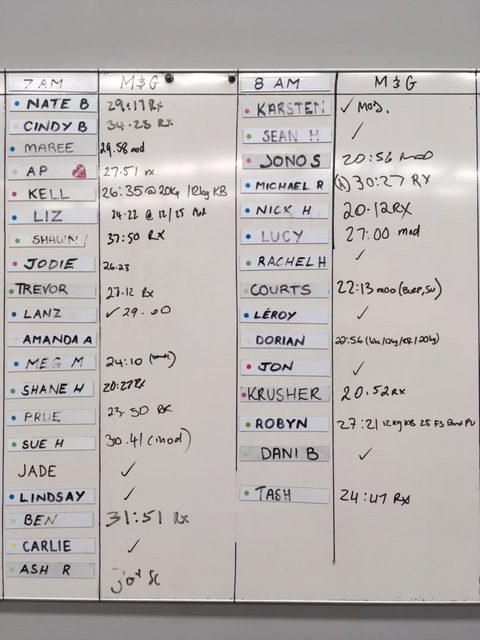 7 AM M&G
NATE B 29:17 Rx
CINDY B 34.28 Rx
MAREE 29.58 mod
AP 27.51 rx
KELL 26:35 @ 20kg /12kg KB
LIZ 24:22 @ 12/25
SHAWN 37:50 RX
JODIE 26.23
TREVOR 27.12 Rx
LANZ ✓ 29.00
AMANDA A
MEG M 24:10
SHANE H 20:27 Rx
PRUE 23.50 RX
SUE H 30.41 (mod)
JADE ✓
LINDSAY ✓
BEN 31:51 Rx
CARLIE ✓
ASH R
8 AM M&G
KARSTEN ✓ MOD.
SEAN H ✓
JONO S 20:56 MOD
MICHAEL R 30:27 RX
NICK H 20.12 RX
LUCY 27:00 mod
RACHEL H ✓
COURTS 22:13 MOD (BURP, SU)
LÉROY ✓
DORIAN 22:56
JON ✓
KRUSHER 20.52 RX
ROBYN 27:21 12kg KB 25 FS Band PU
DANI B ✓
TASH 24:47 Rx